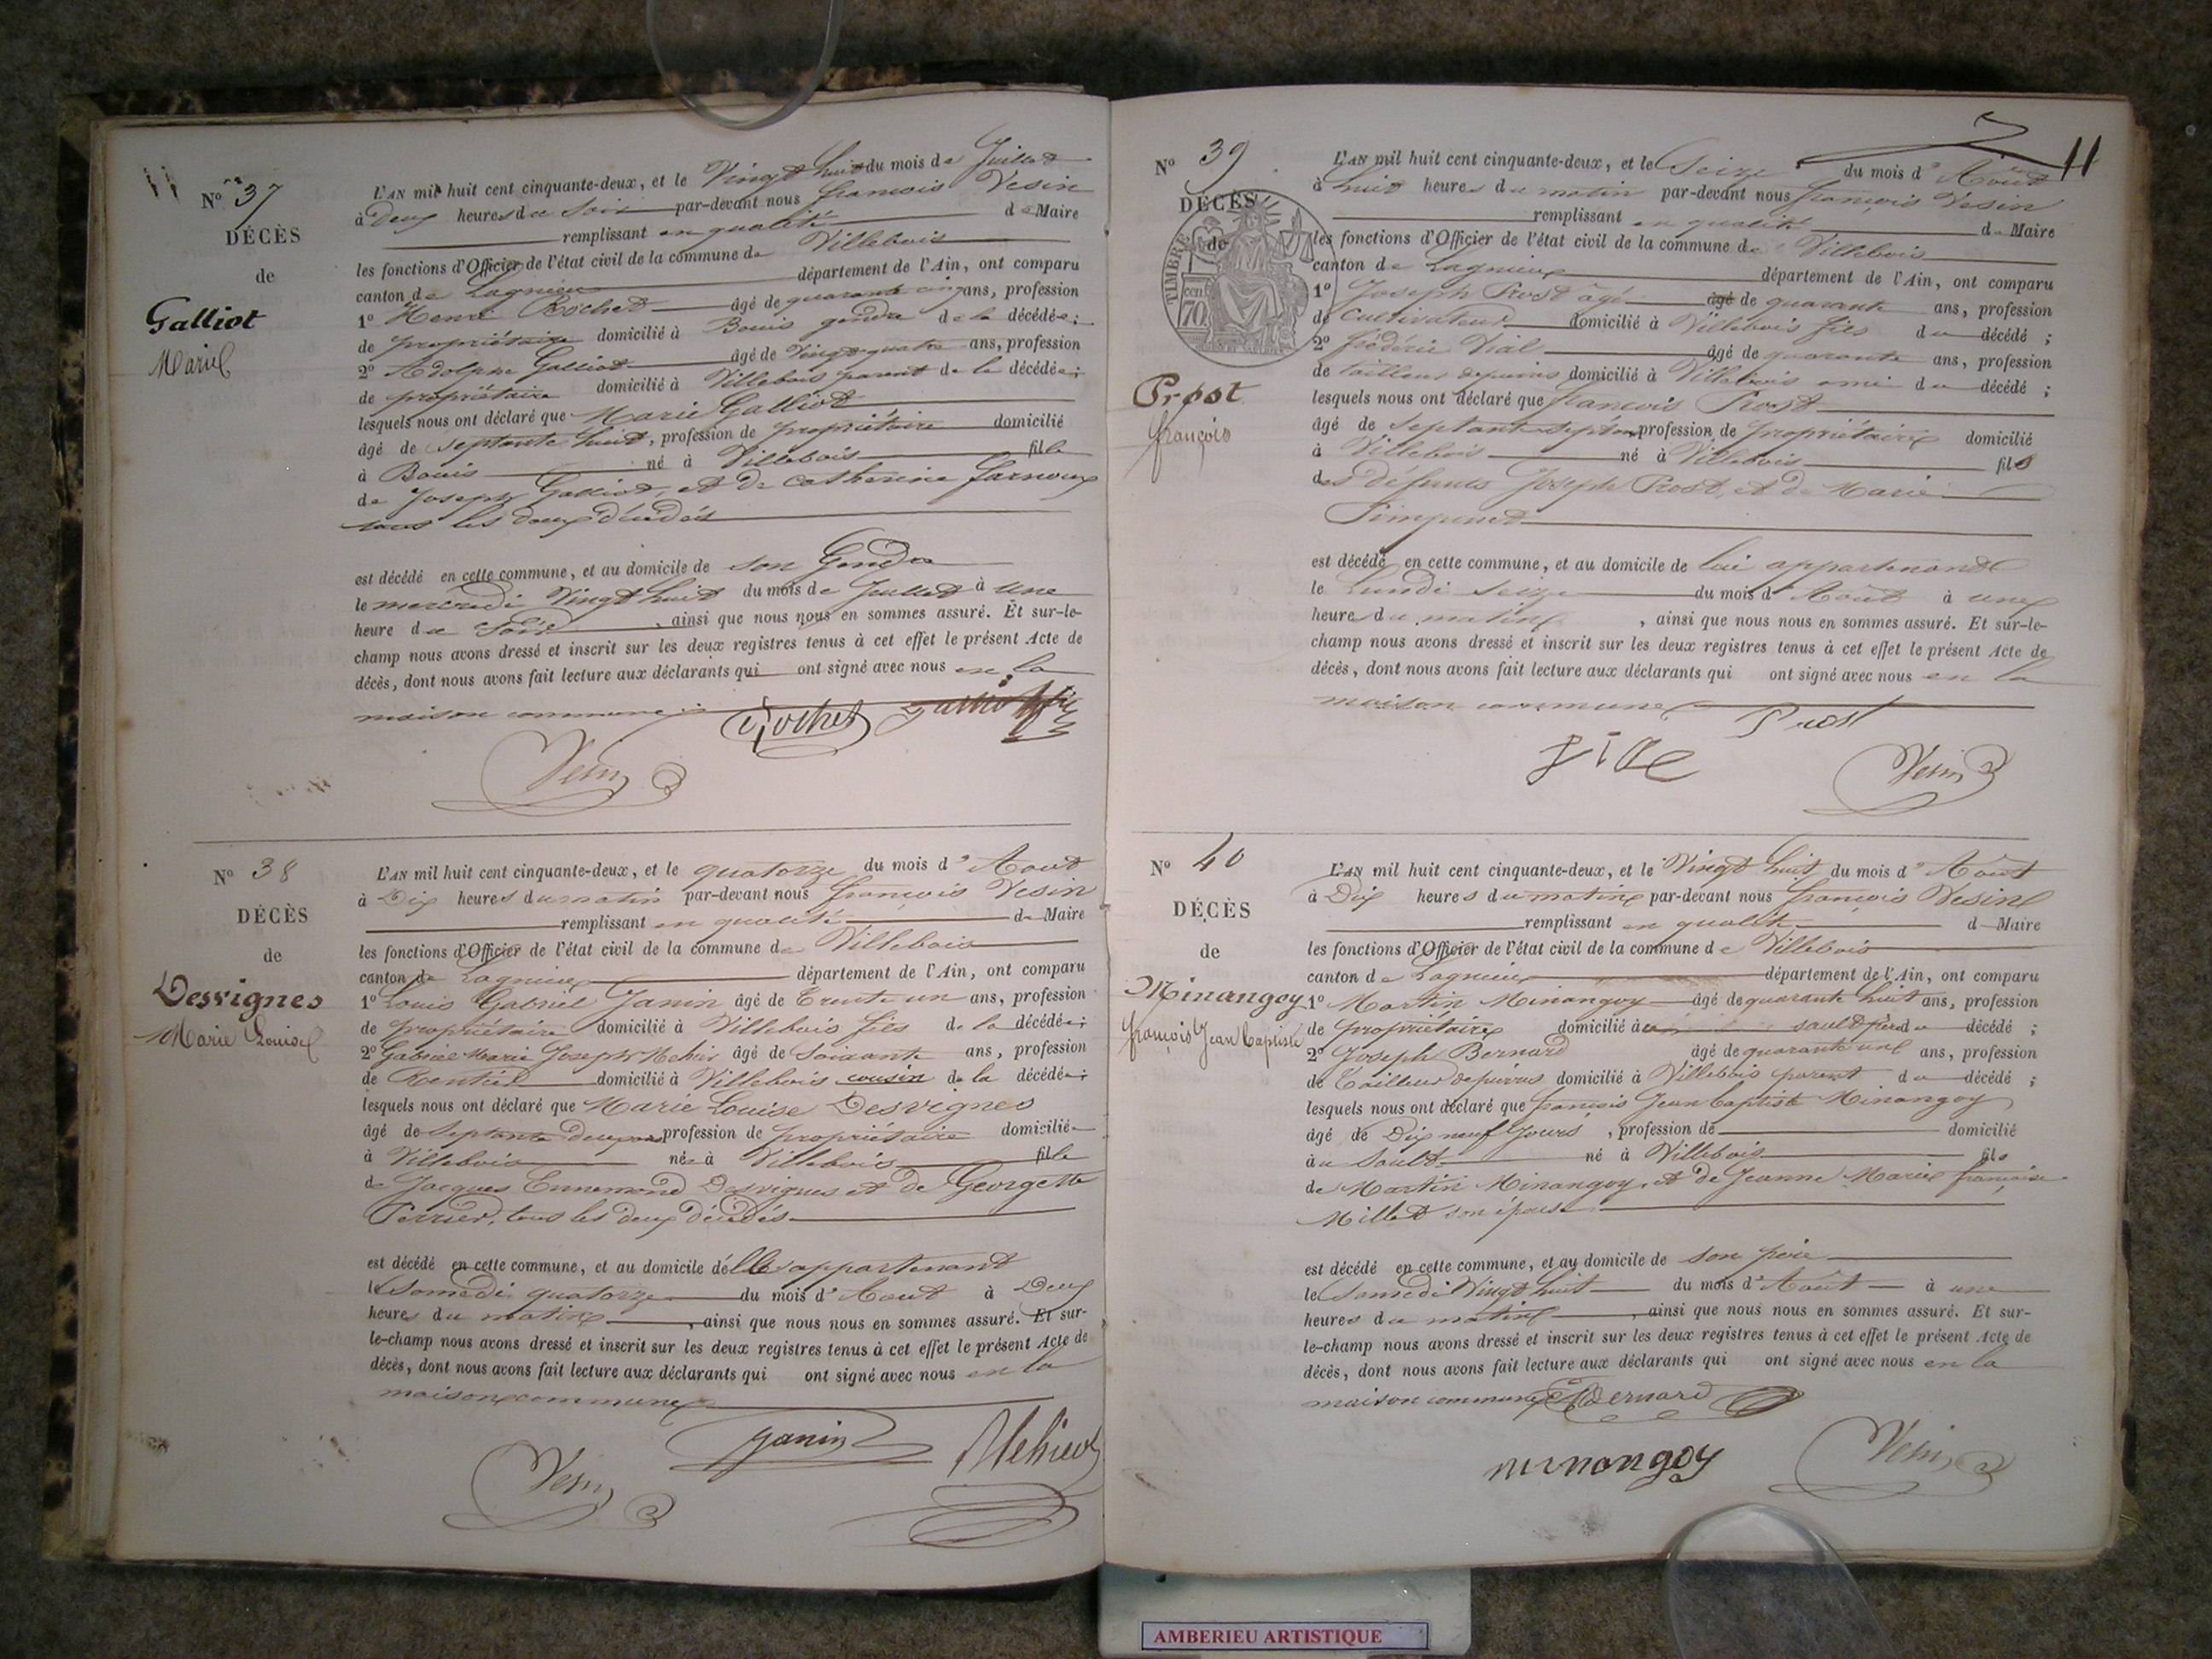 11
N° 37
DÉCÈS
de
Galliot
Marie
L'AN mil huit cent cinquante-deux, et le Vingt huit du mois de Juillet
à Deux heures du Soir par-devant nous françois Vesin
remplissant en qualité de Maire
les fonctions d'Officier de l'état civil de la commune de Villebois
canton de Lagnieu département de l'Ain, ont comparu
1° Henri Rochet âgé de quarante cinq ans, profession
de propriétaire domicilié à Bouis gendre de la décédée;
2° Adolphe Galliot âgé de Vingt quatre ans, profession
de propriétaire domicilié à Villebois parent de la décédée;
lesquels nous ont déclaré que Marie Galliot
âgé de septante huit, profession de propriétaire domicilié
à Bouis né à Villebois fille
de Joseph Galliot, et de Catherine farnoux
tous les deux décédés
est décédé en cette commune, et au domicile de son Gendre
le mercredi Vingt huit du mois de Juillet à une
heure du Soir, ainsi que nous nous en sommes assuré. Et sur-le-
champ nous avons dressé et inscrit sur les deux registres tenus à cet effet le présent Acte de
décès, dont nous avons fait lecture aux déclarants qui ont signé avec nous en la
maison commune
Rochet Galliot
Vesin
N° 38
DÉCÈS
de
Desvignes
Marie Louise
L'AN mil huit cent cinquante-deux, et le quatorze du mois d'Aout
à Dix heures du matin par-devant nous françois Vesin
remplissant en qualité de Maire
les fonctions d'Officier de l'état civil de la commune de Villebois
canton de Lagnieu département de l'Ain, ont comparu
1° Louis Gabriel Janin âgé de Trente un ans, profession
de propriétaire domicilié à Villebois fils de la décédée;
2° Gabriel Marie Joseph âgé de Soixante ans, profession
de Rentier domicilié à Villebois cousin de la décédée;
lesquels nous ont déclaré que Marie Louise Desvignes
âgé de Septante deux ans profession de propriétaire domiciliée
à Villebois née à Villebois fille
de Jacques Ennemond Desvignes et de Georgette
Perrier, tous les deux décédés
est décédé en cette commune, et au domicile d'elle appartenant
le Samedi quatorze du mois d'Aout à Deux
heures du matin, ainsi que nous nous en sommes assuré. Et sur-
le-champ nous avons dressé et inscrit sur les deux registres tenus à cet effet le présent Acte de
décès, dont nous avons fait lecture aux déclarants qui ont signé avec nous en la
maison commune
Janin
Vesin
11
N° 39
DÉCÈS
de
TIMBRE
70
Prost
françois
L'AN mil huit cent cinquante-deux, et le Seize du mois d'Août
à huit heures du matin par-devant nous françois Vesin
remplissant en qualité de Maire
les fonctions d'Officier de l'état civil de la commune de Villebois
canton de Lagnieu département de l'Ain, ont comparu
1° Joseph Prost âgé âgé de quarante ans, profession
de Cultivateur domicilié à Villebois fils du décédé;
2° frédéric Vial âgé de quarante ans, profession
de tailleur de pierres domicilié à Villebois ami du décédé;
lesquels nous ont déclaré que françois Prost
âgé de Septante Sept ans profession de propriétaire domicilié
à Villebois né à Villebois fils
des défunts Joseph Prost, et de Marie
est décédé en cette commune, et au domicile de lui appartenant
le Lundi Seize du mois d'Août à une
heure du matin, ainsi que nous nous en sommes assuré. Et sur-le-
champ nous avons dressé et inscrit sur les deux registres tenus à cet effet le présent Acte de
décès, dont nous avons fait lecture aux déclarants qui ont signé avec nous en la
maison commune
Prost
Vesin
N° 40
DÉCÈS
de
Minangoy
françois Jean Baptiste
L'AN mil huit cent cinquante-deux, et le Vingt huit du mois d'Août
à Dix heures du matin par-devant nous françois Vesin
remplissant en qualité de Maire
les fonctions d'Officier de l'état civil de la commune de Villebois
canton de Lagnieu département de l'Ain, ont comparu
1° Martin Minangoy âgé de quarante huit ans, profession
de propriétaire domicilié au sault père du décédé;
2° Joseph Bernard âgé de quarante un ans, profession
de Tailleur de pierres domicilié à Villebois parent du décédé;
lesquels nous ont déclaré que françois Jean Baptiste Minangoy
âgé de Dix neuf Jours, profession de domicilié
au Sault né à Villebois fils
de Martin Minangoy, et de Jeanne Marie françoise
Millet son épouse
est décédé en cette commune, et au domicile de son père
le Samedi Vingt huit du mois d'Août à une
heures du matin, ainsi que nous nous en sommes assuré. Et sur-
le-champ nous avons dressé et inscrit sur les deux registres tenus à cet effet le présent Acte de
décès, dont nous avons fait lecture aux déclarants qui ont signé avec nous en la
maison commune Bernard
minangoy
Vesin
AMBERIEU ARTISTIQUE